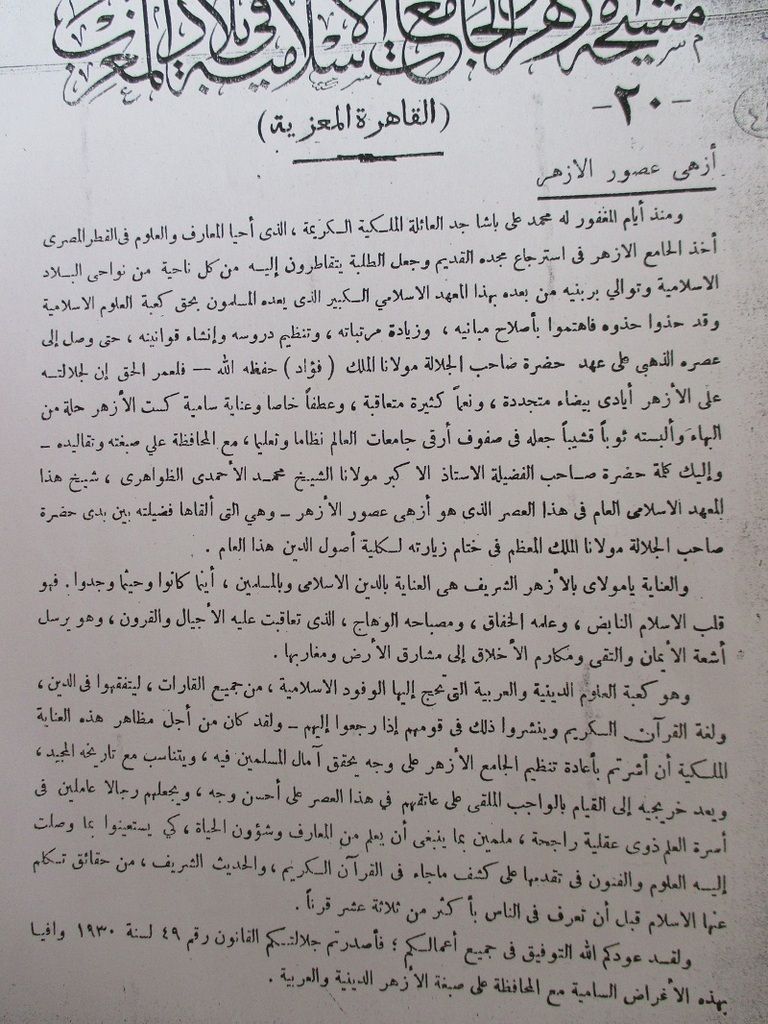 مشيخة الأزهر والجامعات الاسلامية في بلاد المغرب
- ٢٠ -
(القاهرة المعزية)
أزهى عصور الازهر
ومنذ أيام المغفور له محمد على باشا جد العائلة الملكية الكريمة ، الذى أحيا المعارف والعلوم فى القطر المصرى
أخذ الجامع الازهر فى استرجاع مجده القديم وجعل الطلبة يتقاطرون إليه من كل ناحية من نواحى البلاد
الاسلامية وتوالي بربنيه من بعده بهذا المعهد الاسلامي الكبير الذى يعده المسلمون بحق كعبة العلوم الاسلامية
وقد حذوا حذوه فاهتموا بأصلاح مبانيه ، وزيادة مرتباته ، وتنظيم دروسه وإنشاء قوانينه ، حتى وصل إلى
عصره الذهبى على عهد حضرة صاحب الجلالة مولانا الملك ( فؤاد ) حفظه الله — فلعمر الحق إن لجلالته
على الأزهر أيادى بيضاء متجددة ، ونعماً كثيرة متعاقبة ، وعطفاً خاصا وعناية سامية كست الأزهر حلة من
البهاء وألبسته ثوباً قشيباً جعله فى صفوف أرقى جامعات العالم نظاما وتعليما ، مع المحافظة علي صبغته وتقاليده —
وإليك كلمة حضرة صاحب الفضيلة الاستاذ الاكبر مولانا الشيخ محمد الأحمدى الظواهرى ، شيخ هذا
المعهد الاسلامى العام فى هذا العصر الذى هو أزهى عصور الأزهر — وهي التى ألقاها فضيلته بين يدى حضرة
صاحب الجلالة مولانا الملك المعظم فى ختام زيارته لكلية أصول الدين هذا العام .
والعناية يامولاى بالأزهر الشريف هى العناية بالدين الاسلامى وبالمسلمين ، أينما كانوا وحيثما وجدوا . فهو
قلب الاسلام النابض ، وعلمه الخفاق ، ومصباحه الوهاج ، الذى تعاقبت عليه الأجيال والقرون ، وهو يرسل
أشعة الأيمان والتقى ومكارم الأخلاق إلى مشارق الأرض ومغاربها .
وهو كعبة العلوم الدينية والعربية التى تحج إليها الوفود الاسلامية ، من جميع القارات ، ليتفقهوا فى الدين ،
ولغة القرآن الكريم وينشروا ذلك فى قومهم إذا رجعوا إليهم — ولقد كان من أجل مظاهر هذه العناية
الملكية أن أشرتم بأعادة تنظيم الجامع الأزهر على وجه يحقق آمال المسلمين فيه ، ويتناسب مع تاريخه المجيد ،
ويعد خريجيه إلى القيام بالواجب الملقى على عاتقهم في هذا العصر على أحسن وجه ، ويجعلهم رجالا عاملين فى
أسرة العلم ذوى عقلية راجحة ، ملمين بما ينبغى أن يعلم من المعارف وشؤون الحياة ، كي يستعينوا بما وصلت
إليه العلوم والفنون فى تقدمها على كشف ماجاء فى القرآن الكريم ، والحديث الشريف ، من حقائق تكلم
عنها الاسلام قبل أن تعرف فى الناس بأكثر من ثلاثة عشر قرناً .
ولقد عودكم الله التوفيق فى جميع أعمالكم ؛ فأصدرتم جلالتكم القانون رقم ٤٩ لسنة ١٩٣٠ وافيا
بهذه الأغراض السامية مع المحافظة على صبغة الأزهر الدينية والعربية .